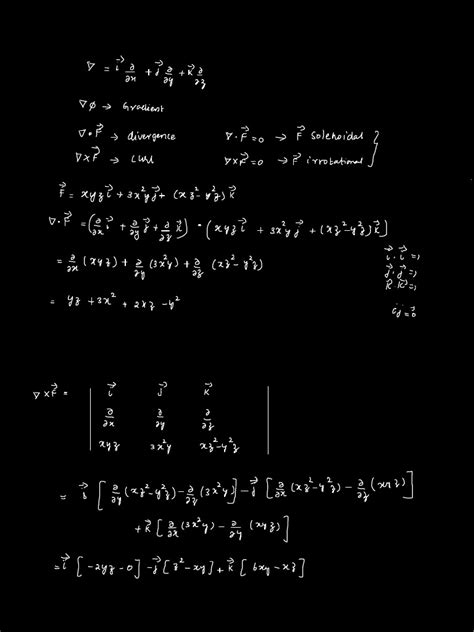 ∇ = i⃗ ∂/∂x + j⃗ ∂/∂y + k⃗ ∂/∂z
∇φ → Gradient
∇•F⃗ → divergence    ∇•F⃗ = 0 → F⃗ Solenoidal
∇×F⃗ → curl    ∇×F⃗ = 0 → F⃗ irrotational }
F⃗ = xyz i⃗ + 3x²y j⃗ + (xz² - y²z) k⃗
∇•F⃗ = (∂/∂x i⃗ + ∂/∂y j⃗ + ∂/∂z k⃗) • (xyz i⃗ + 3x²y j⃗ + (xz² - y²z) k⃗)
= ∂/∂x (xyz) + ∂/∂y (3x²y) + ∂/∂z (xz² - y²z)
i⃗·i⃗ = 1
j⃗·j⃗ = 1
k⃗·k⃗ = 1
= yz + 3x² + 2xz - y²
ij = 0
∇×F⃗ = | i⃗ j⃗ k⃗ |
| ∂/∂x ∂/∂y ∂/∂z |
| xyz 3x²y xz² - y²z |
= i⃗ [∂/∂y (xz² - y²z) - ∂/∂z (3x²y)] - j⃗ [∂/∂x (xz² - y²z) - ∂/∂z (xyz)]
+ k⃗ [∂/∂x (3x²y) - ∂/∂y (xyz)]
= i⃗ [-2yz - 0] - j⃗ [z² - xy] + k⃗ [6xy - xz]